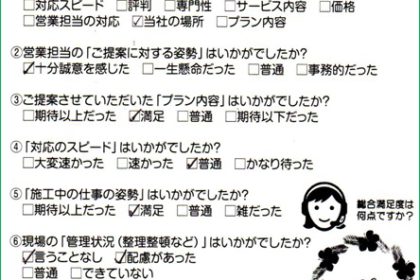 □対応スピード □評判 □専門性 □サービス内容 □価格
□営業担当の対応 ☑当社の場所 □プラン内容
②営業担当の「ご提案に対する姿勢」はいかがでしたか?
☑十分誠意を感じた □一生懸命だった □普通 □事務的だった
③ご提案させていただいた「プラン内容」はいかがでしたか?
□期待以上だった ☑満足 □普通 □期待以下だった
④「対応のスピード」はいかがでしたか?
□大変速かった □速かった ☑普通 □かなり待った
⑤「施工中の仕事の姿勢」はいかがでしたか?
□期待以上だった ☑満足 □普通 □雑だった
総合満足度は
何点ですか?
⑥現場の「管理状況(整理整頓など)」はいかがでしたか?
☑言うことなし ☑配慮があった
□普通 □できていない